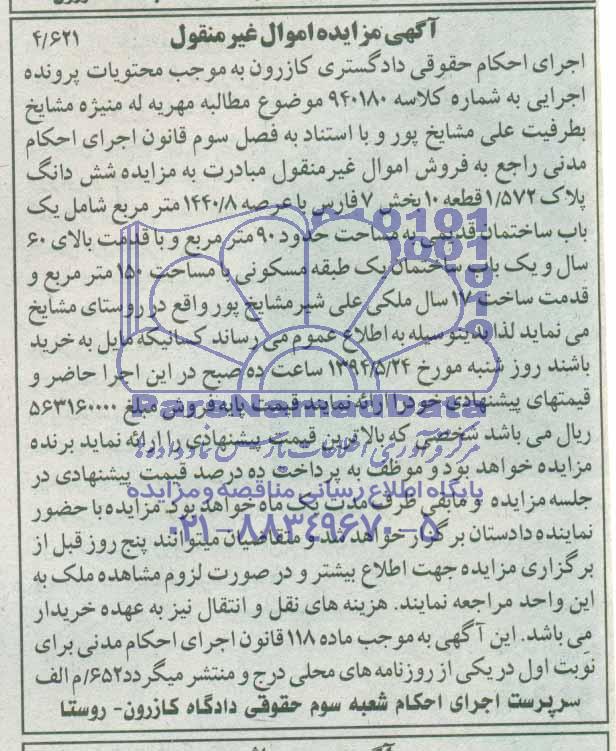 آگهی مزایده اموال غیر منقول
۴/۶۲۱
اجرای احکام حقوقی دادگستری کازرون به موجب محتویات پرونده
اجرایی به شماره کلاسه ۹۴۰۱۸۰ موضوع مطالبه مهریه له منیژه مشایخ
بطرفیت علی مشایخ پور و با استناد به فصل سوم قانون اجرای احکام
مدنی راجع به فروش اموال غیرمنقول مبادرت به مزایده شش دانگ
پلاک ۱/۵۷۲ قطعه ۱۰ بخش ۷ فارس با عرصه ۱۴۴۰/۸ متر مربع شامل یک
باب ساختمان قدیمی به مساحت حدود ۹۰ متر مربع و با قدمت بالای ۶۰
سال و یک باب ساختمان یک طبقه مسکونی با مساحت ۱۵۰ متر مربع و
قدمت ساخت ۱۷ سال ملکی علی شیر مشایخ پور واقع در روستای مشایخ
می نماید لذا بدینوسیله به اطلاع عموم می رساند کسانیکه مایل به خرید
باشند روز شنبه مورخ ۱۳۹۴/۵/۲۴ ساعت ده صبح در این اجرا حاضر و
قیمتهای پیشنهادی خود را ارائه نمایند قیمت پایه فروش مبلغ ۵۶۳۱۶۰۰۰۰
ریال می باشد شخصی که بالاترین قیمت پیشنهادی را ارائه نماید برنده
مزایده خواهد بود و موظف به پرداخت ده درصد قیمت پیشنهادی در
جلسه مزایده و مابقی ظرف مدت یک ماه خواهد بود. مزایده با حضور
نماینده دادستان برگزار خواهد شد و متقاضیان میتوانند پنج روز قبل از
برگزاری مزایده جهت اطلاع بیشتر و در صورت لزوم مشاهده ملک به
این واحد مراجعه نمایند. هزینه های نقل و انتقال نیز به عهده خریدار
می باشد. این آگهی به موجب ماده ۱۱۸ قانون اجرای احکام مدنی برای
نوبت اول در یکی از روزنامه های محلی درج و منتشر میگردد ۶۵۲/م الف
سرپرست اجرای احکام شعبه سوم حقوقی دادگاه کازرون- روستا
ParsNamadData
پایگاه اطلاع رسانی مناقصه و مزایده
۰۲۱-۸۸۳۴۹۶۷۰-۵